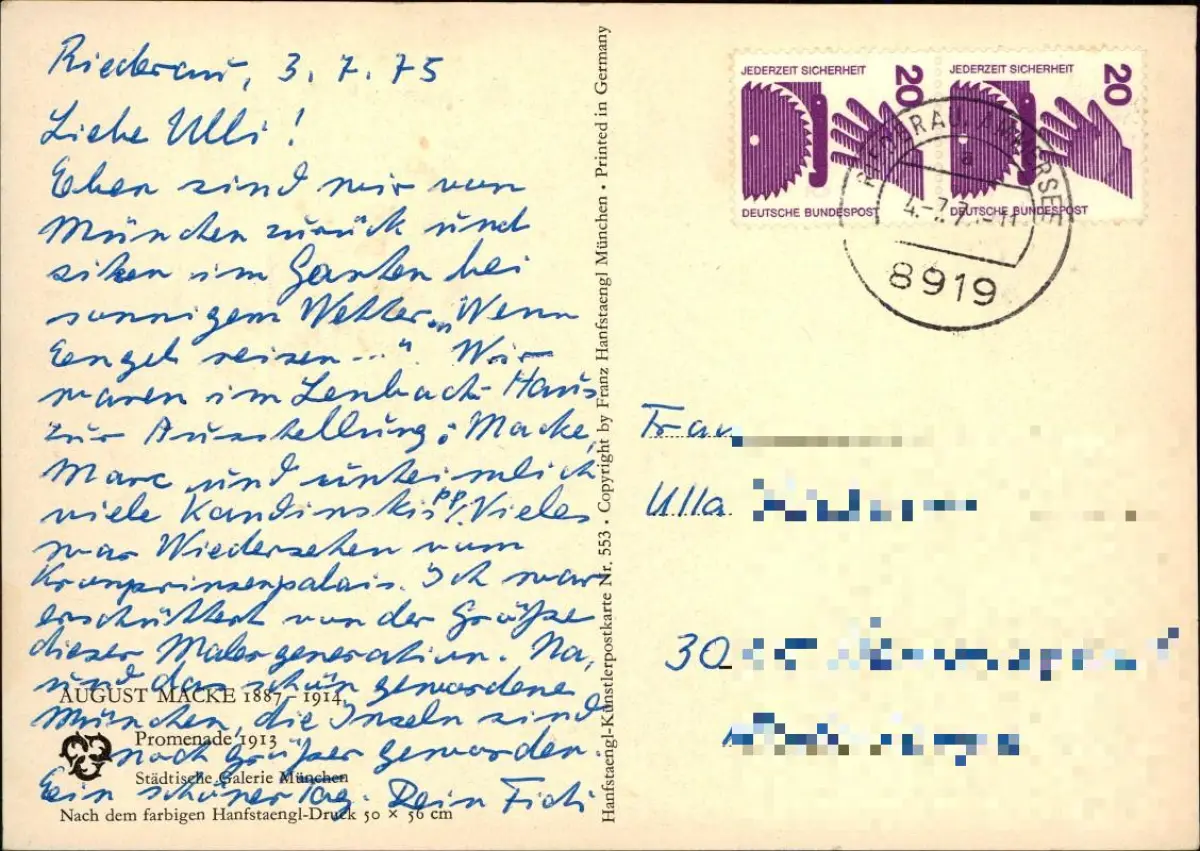 Riederau, 3. 7. 75
Liebe Ulli!
Eben sind wir von
München zurück und
sitzen im Garten bei
sonnigem Wetter „Wenn
Eengel reisen ...“. Wir
waren im Lenbach-Haus
zur Ausstellung: Macke,
Marc und unheimlich
viele Kandinskis pp! Vieles
war Wiedersehen vom
Kronprinzenpalais. Ich war
erschüttert von der Größe
dieser Malergeneration. Na,
und das schön gewordene
München, die Inseln sind
noch größer geworden.
Ein schöner Tag. Dein Fidi
AUGUST MACKE 1887–1914
Promenade 1913
Städtische Galerie München
Nach dem farbigen Hanfstaengl-Druck 50 × 56 cm
Hanfstaengl-Künstlerpostkarte Nr. 553 • Copyright by Franz Hanfstaengl München • Printed in Germany
JEDERZEIT SICHERHEIT 20
DEUTSCHE BUNDESPOST
JEDERZEIT SICHERHEIT 20
DEUTSCHE BUNDESPOST
RIEDERAU, AMMERSEE
4.-7.7 -11
8919
Frau
Ulla
30